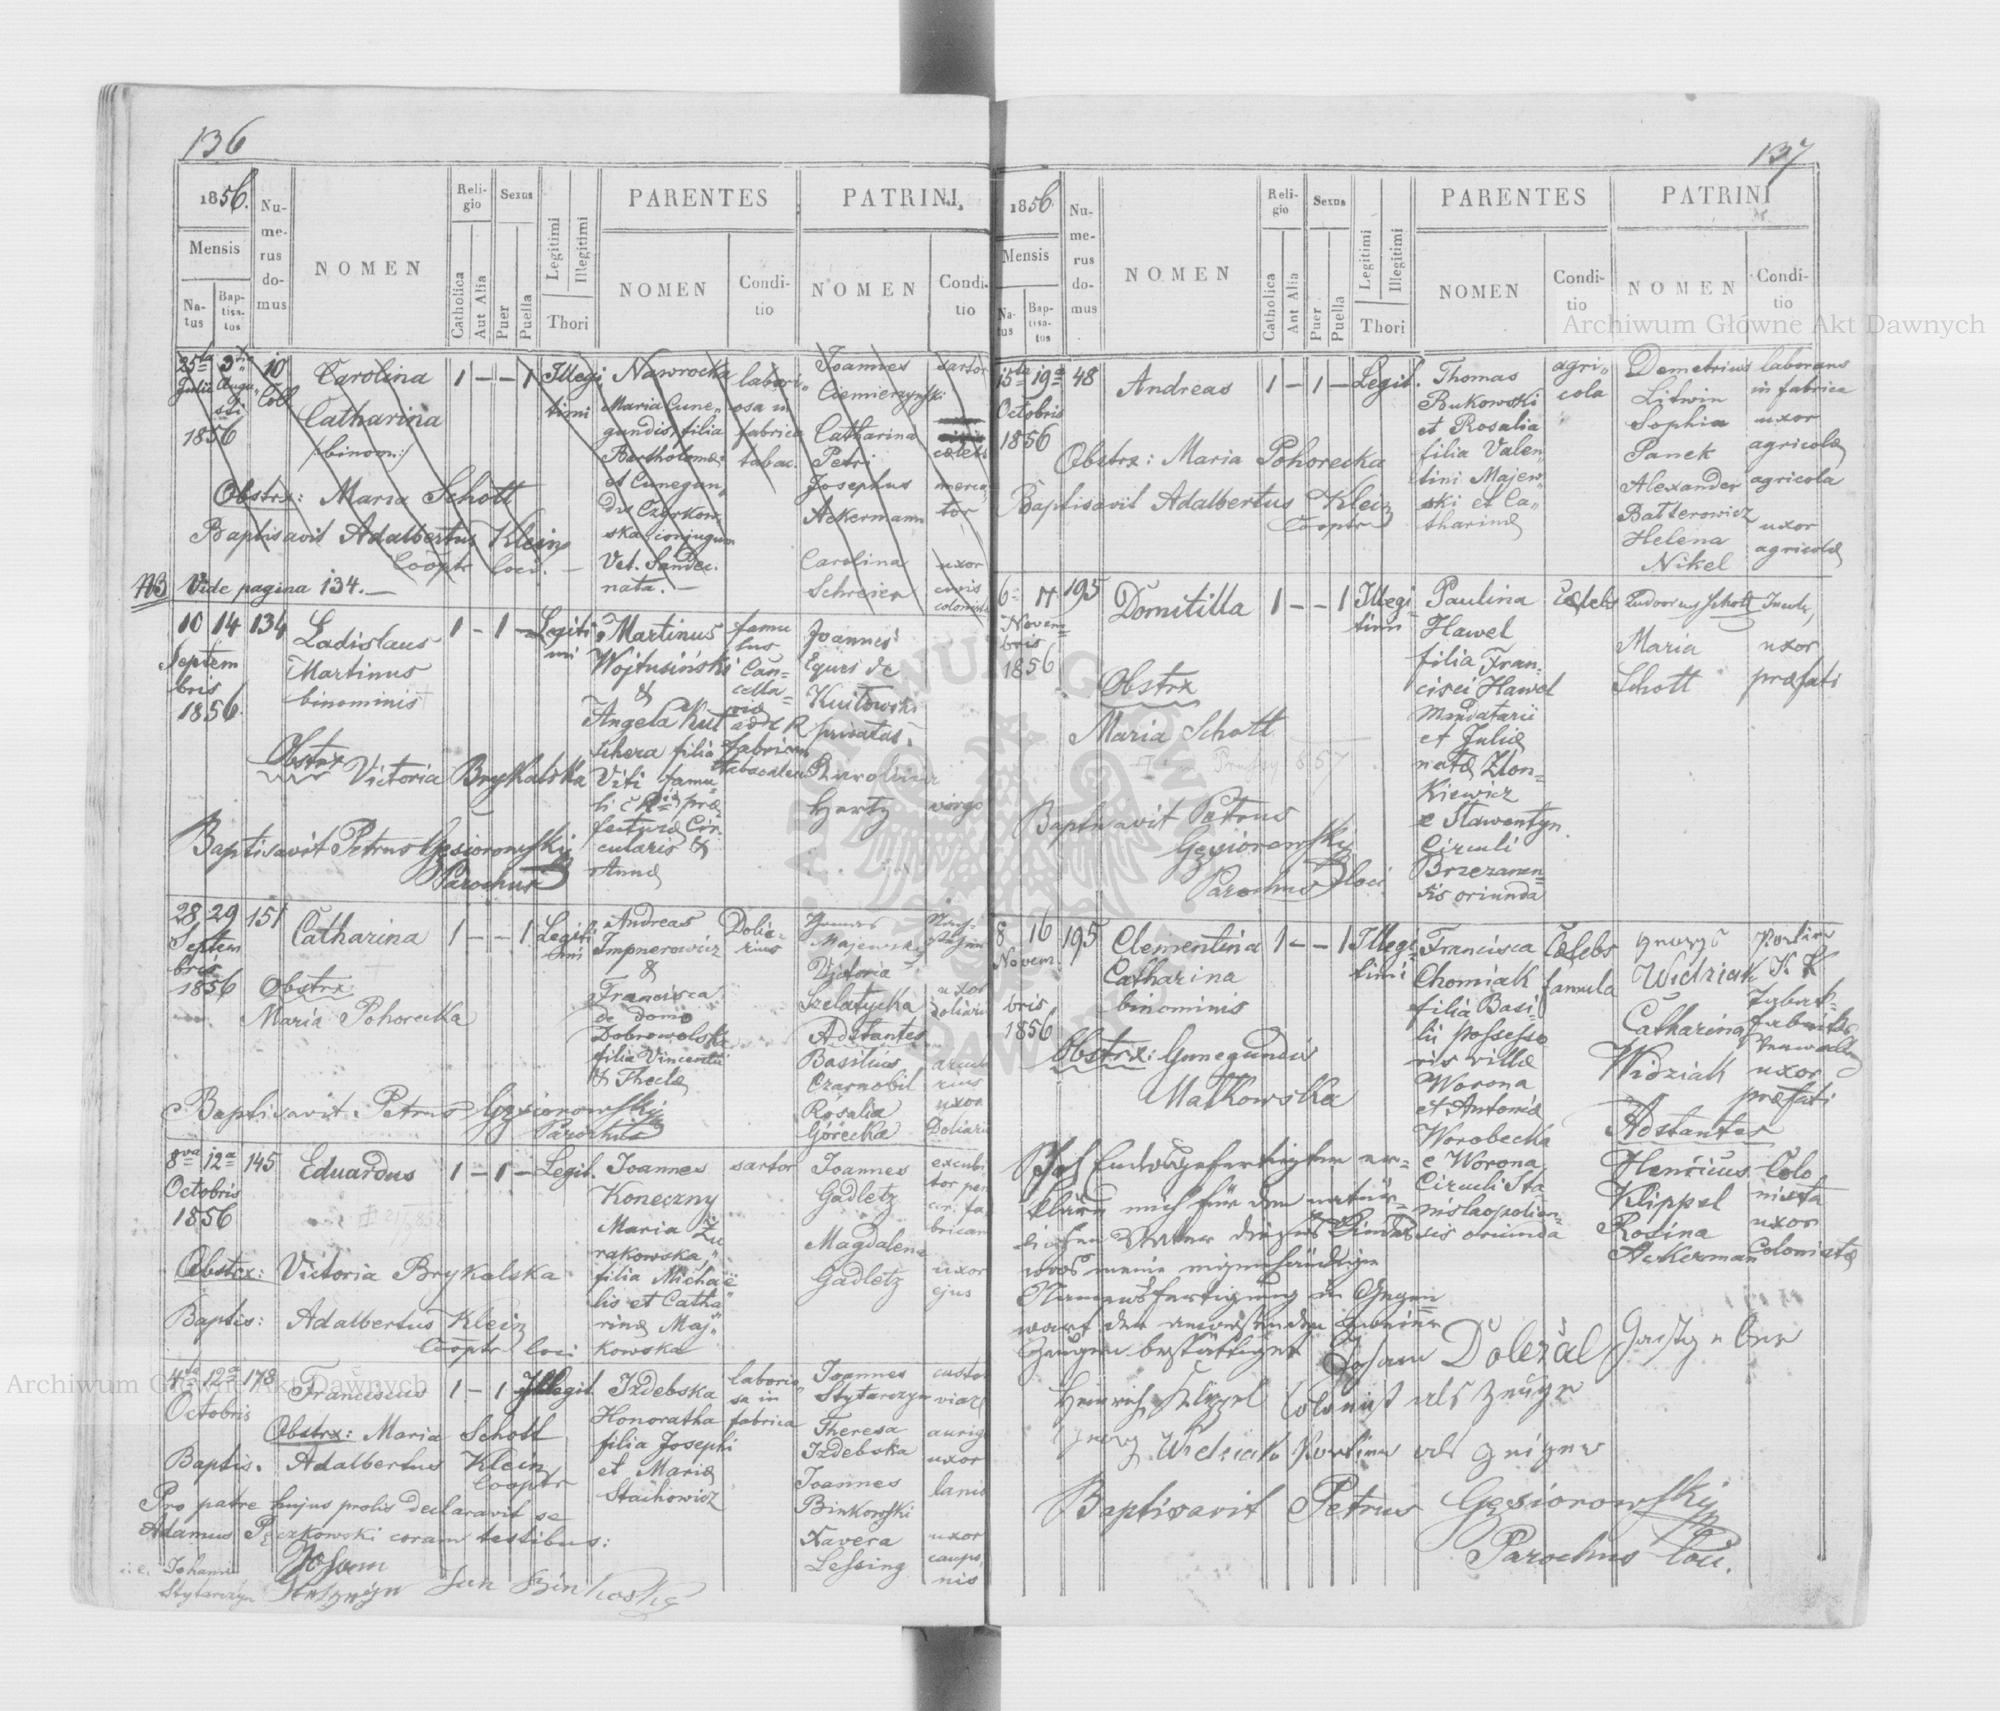 136
1856.
Mensis
Na-
tus
Bap-
tisa-
tus
Nu-
me-
rus
do-
mus
NOMEN
Reli-
gio
Catholica
Aut Alia
Sexus
Puer
Puella
Legitimi
Illegitimi
Thori
PARENTES
NOMEN
Condi-
tio
PATRINI
NOMEN
Condi-
tio
25ta 3tia 10
Julii Augu-
sti Coll
1856
Carolina
Catharina
/:binom:/
1 - - 1
Illegi
timi
Nawrocka
Maria Cune„
gundis, filia
Bartholomæi
et Cunegun„
dis Czerkow„
ska conjugum
Vet. Sandec.
nata. -
labori„
osa in
fabrica
tabac.
Joannes
Ciemierzyński
Catharina
Petri
Josephus
Ackermann
Carolina
Schreier
sartor
cœlebs
merca„
tor
uxor
civis
colonistæ
Obstrx: Maria Schott
Baptisavit Adalbertus Klein
Cooptr loci. -
NB Vide pagina 134. -
10 14 134
Septem
bris
1856.
Ladislaus
Martinus
binominis
1 - 1 -
Legiti
mi
Martinus
Wojtusiński
&
Angela Kut
schera filia
Viti famu-
li c R præ
fecturæ Cir-
cularis &
Annæ
famu
lus
Can-
cella-
riæ
fabricæ
tabacalem
Joannes
Eques de
Kuitowski
privatus
Karolina
Hertz
virgo
Obstrx Victoria Brykalska
Baptisavit Petrus Gęsiorowski
Parochus
28 29 151
Septem
bris
1856
Catharina
1 - - 1
Legiti
mi
Andreas
Impnerowicz
&
Francisca
de domo
Dobrowolska
filia Vincentii
& Theclæ
Dolia-
rius
Majewski
Victoria
Szelatycka
Adstantes
Basilius
Czarnobil
Rosalia
Górecka
uxor
doliarii
uxor
Doliarii
Obstrx
Maria Pohorecka
Baptisavit Petrus Gęsiorowski
Parochus
8va 12a 145
Octobris
1856
Eduardus
1 - 1 -
Legit.
Joannes
Koneczny
Maria Żu
rakowska „
filia Michaë
lis et Catha„
rinæ Maj„
kowska
sartor
Joannes
Gadletz
Magdalena
Gadletz
uxor
ejus
Obstrx: Victoria Brykalska
Baptis: Adalbertus Klein
Cooptr loci
4ta 12a 178
Octobris
Franciscus
1 - 1
Illegit
Izdebska
Honoratha
filia Josephi
et Mariæ
Stachowicz
laborio„
sa in
fabrica
Joannes
Stytarczyn
Theresa
Izdebska
Joannes
Binkowski
Xavera
Lessing
uxor
lanio
uxor
caupo„
nis
Obstrx: Maria Schott
Baptis. Adalbertus Klein
Cooptr
Pro patre hujus prolis declaravit se
Adamus Pęczkowski coram testibus:
i.e. Johann
Stytarczyn
Johann
Jan Binkoski
137
1856
Mensis
Na-
tus
Bap-
tisa-
tus
Nu-
me-
rus
do-
mus
NOMEN
Reli-
gio
Catholica
Aut Alia
Sexus
Puer
Puella
Legitimi
Illegitimi
Thori
PARENTES
NOMEN
Condi-
tio
PATRINI
NOMEN
Condi-
tio
15ta 19a 48
Octobris
1856
Andreas
1 - 1 -
Legit.
Thomas
Bukowski
et Rosalia
filia Valen
tini Majew„
ski et Ca„
tharinæ
agri„
cola
Demetrius
Litwin
Sophia
Panek
Alexander
Batterowicz
Helena
Nikel
laborans
in fabrica
uxor
agricolæ
agricola
uxor
agricolæ
Obstrx: Maria Pohorecka
Baptisavit Adalbertus Klein
Cooptr
6 17 195
Novem
bris
1856
Domitilla
1 - - 1
Illegi
timi
Paulina
Hawel
filia Fran-
cisci Hawel
Mandatarii
et Juliæ
natæ Zlon-
kiewicz
e Slawentyn
Circuli
Brzezanen-
sis oriunda
Cælebs
Ludovicus Schott
Maria
Schott
uxor
præfati
Obstrx
Maria Schott
Baptisavit Petrus
Gęsiorowski
Parochus loci
8 16 195
Novem.
bris
1856
Clementina
Catharina
binominis
1 - - 1
Illegi
timi
Francisca
Chomiak
filia Basi-
lii possesso
ris villæ
Worona
et Antoniæ
Worobecka
e Worona
Circuli Sta
nislaopolien-
sis oriunda
Cælebs
famula
Widziak
Catharina
Widziak
Adstantes
Henricus
Klippel
Rosina
Ackerman
Portier
K. K
uxor
præfati
Colo
nista
uxor
Colonistæ
Obstrx: Gunegundis
Malkowska
Ich Endesgefertigter er-
kläre mich für den natür-
lichen Vater dieses Kindes
was meine eigenhändige
Namensfertigung in Gegen
wart der anwesenden
Zeugen bestättiget Johann Doležal
Heinrich Klippel Colonist als Zeuge
Georg Widziak Portier als Zeuge
Baptisavit Petrus Gęsiorowski
Parochus loci.
Archiwum Główne Akt Dawnych
Archiwum Główne Akt Dawnych